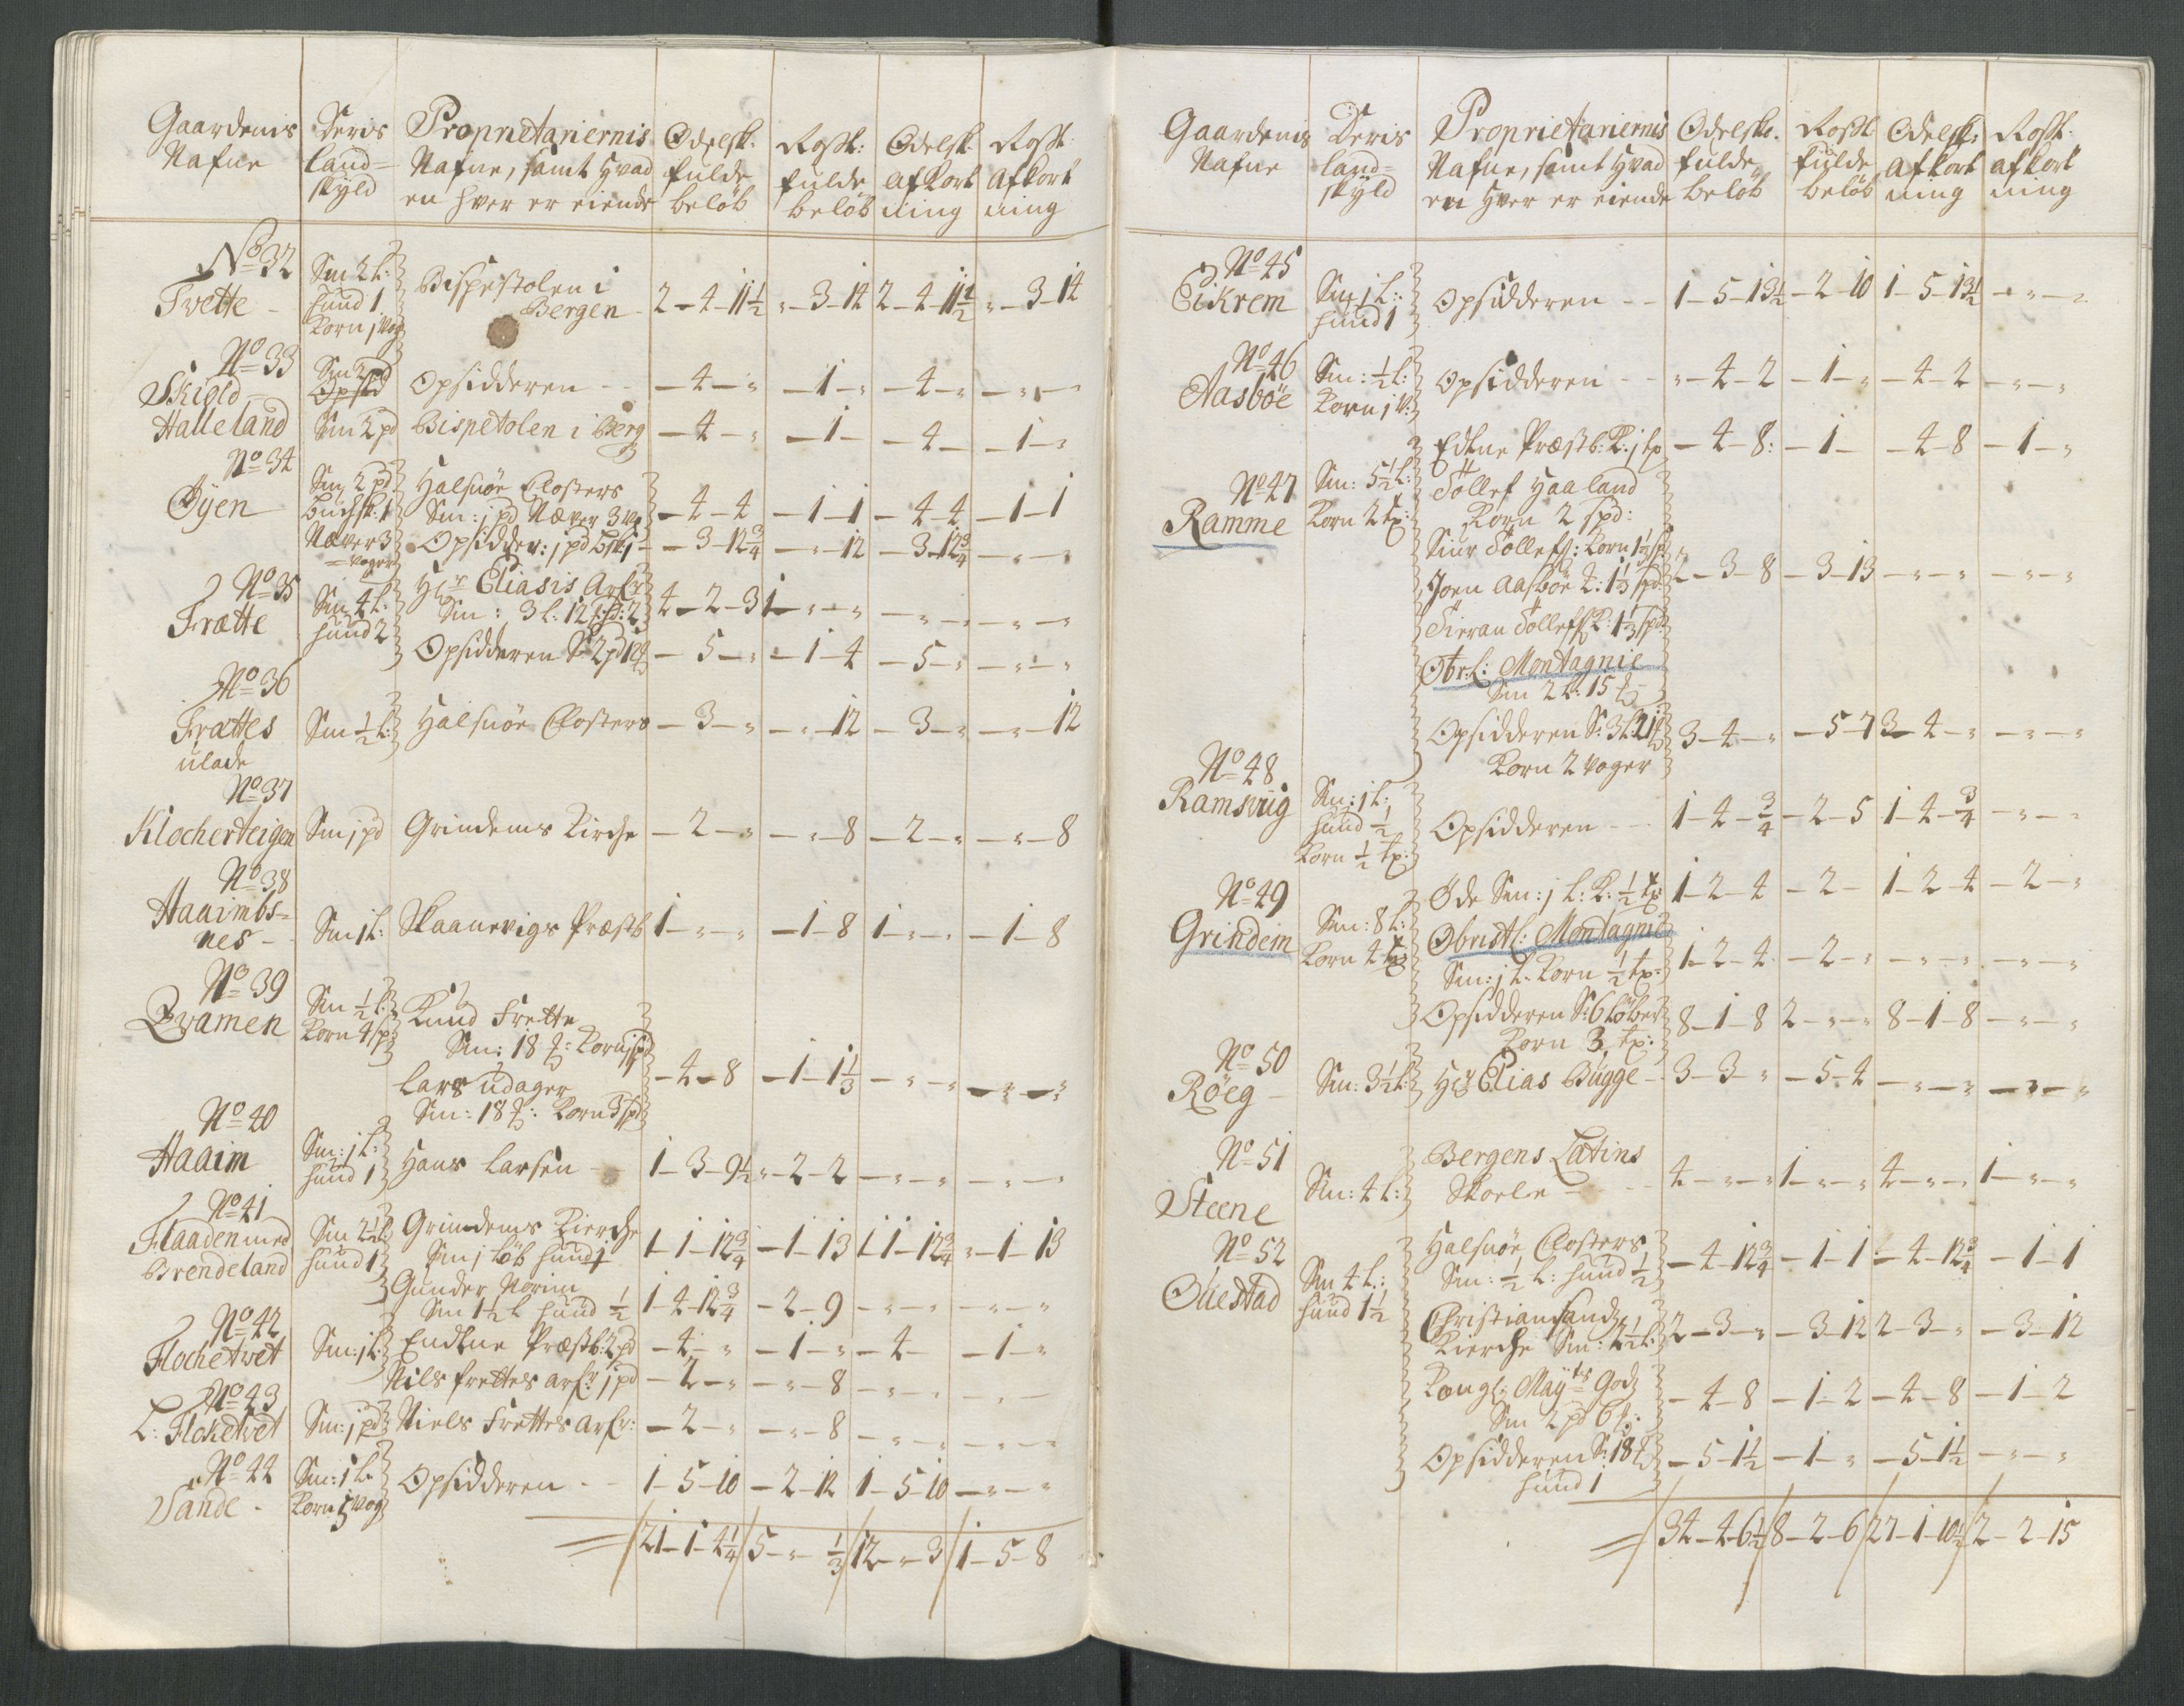 Gaardenis Nafne | Deris land=skyld | Proprietariernis Nafne, samt hvad en hver er eiende | Odelsk: fulde beløb | Roßt: fulde beløb | Odelsk: afkortning | Roßt: afkortning
No 32
Tvette - | Sm 2 l: hund 1 Korn 1 vog | Bispestolen i Bergen | 2-4-11½ | "-3-14 | 2-4-11½ | "-3-14
No 33
Skiold | Sm 2 pd | Opsidderen - - | -4-" | -1-" | -4-" | -"-"
Halleland | Sm 2 pd | Bispetolen i Berg | -4-" | -1- | -4- | -1-"
No 34
Øyen | Sm 2 pd Buchsk: 1 Næver 3 voger | Halsnöe Closters
Sm: 1 pd Næver 3 v | -4-4 | -1-1 | -4-4 | -1-1
Opsidder: 1 pd bsk 1 | -3-12¾ | -"-12 | -3-12¾ | -"-"
No 35
Frætte | Sm 4 l: hund 2 | Hr Eliasis Arfr
Sm: 3 l: 12 hd: 2 | 4-2-3 | 1-"-" | -"-" | -"-"
Opsidderen S 2 pd 12 | -5-" | -1-4 | -5-" | -"-"
No 36
Frættes ulade | Sm ½ l: | Halsnöe Closters | -3-" | -"-12 | -3-" | -"-12
No 37
Klocherteigen | Sm 1 pd | Grindems Kirche | -2-" | -"-8 | -2-" | -"-8
No 38
Haaimbs=nes - | Sm 1 l: | Skaanevigs Præstb | 1-"-" | -1-8 | 1-"-" | -1-8
No 39
Qvamen | Sm ½ l: Korn 4 sp | Knud Frette
Sm: 18 : Korn 1 spd
Lars udager
Sm: 18 : Korn 3 spd | -4-8 | -1-1⅓ | -"-" | -"-"
No 40
Haaim | Sm: 1 l: hund 1 | Hans Larsen - | 1-3-9½ | "-2-2 | -"-" | -"-"
No 41
Flaaden med Brendeland | Sm 2½ l: hund 1 | Grindems Kierche
Sm 1 løb hund | 1-1-12¾ | -1-13 | 1-1-12¾ | "-1-13
Gunder Norim
Sm 1½ l hund ½ | 1-4-12¾ | -2-9 | -"-" | -"-"
No 42
Flochetvet | Sm: 1 l: | Endkne Præstb: 2 pd | -4-" | -1-" | -4- | -1-"
Nils frettes arfr 1 pd | -2-" | -"-8 | -"-" | -"-"
No 43
L: Floketvet | Sm: 1 pd | Niels Frettes arfr: | -2-" | -"-8 | -"-" | -"-"
No 44
Sande - | Sm: 1 l: Korn 5 vog | Opsidderen - - | 1-5-10 | -2-12 | 1-5-10 | -"-"
21-1-4¼ | 5-"-⅓ | 12-"-3 | 1-5-8
Gaardenis Nafne | Deris land=skyld | Proprietariernis Nafne, samt hvad en hver er eiende | Odelsk: fulde beløb | Roßt: fulde beløb | Odelsk: afkortning | Roßt: afkortning
No 45
Eikrem | Sm: 1 l: hund 1 | Opsidderen - - | 1-5-13½ | -2-10 | 1-5-13½ | -"-"
No 46
Aasböe | Sm: ½ l: Korn 1 v: | Opsidderen - - | "-4-2 | -1-" | -4-2 | -"-"
Edkne Præstb: K: 1 tp | -4-8: | -1- | -4-8 | -1-"
No 47
Ramme | Sm: 5½ l: Korn 2 tp: | Töllef Haaland
Korn 2 spd:
Siur Töllefs: Korn 1½ sp
Joen Aasböe K: 1⅓ spd | -3-8 | -3-13 | -"-" | -"-"
Sieran Töllefs K: 1⅓ spd
Obr.l: Montagnie
Sm 2 l: 15
Opsidderen S: 3 l: 21
Korn 2 voger | 3-4-" | -5-7 | 3-4-" | -"-"
No 48
Ramsviig | Sm: 1 l: hund ½ Korn ½ tp: | Opsidderen - - | 1-4-¾ | -2-5 | 1-4-¾ | -"-"
No 49
Grindem | Sm: 8 l: Korn 4 tp: | Öde Sm: 1 l: K: ½ tp | 1-2-4 | -2- | 1-2-4 | -2-"
Obristl: Montagnie
Sm: 1 l: Korn ½ tp: | 1-2-4 | -2-" | -"-" | -"-"
Opsidderen S: 6 löber
Korn 3 tp: | 8-1-8 | 2-"-" | 8-1-8 | -"-"
No 50
Röeg - | Sm: 3½ l: | Hr Elias Bugge - | 3-3-" | -5-4 | -"-" | -"-"
No 51
Steene | Sm: 4 l: | Bergens Latins
Skoele - - - | 4-"-" | 1-"-" | 4-"-" | 1-"-"
No 52
Øllestad | Sm 4 l: hund 1½ | Halsnöe Closters
Sm: ½ l: hund ½ | -4-12¾ | -1-1 | -4-12¾ | -1-1
Christiansands
Kierche Sm: 2½ l: | 2-3-" | -3-12 | 2-3-" | -3-12
Kongl: Mayts Gods
Sm 2 pd 6 : | -4-8 | -1-2 | -4-8 | -1-2
Opsidderen S: 18
hund 1 | -5-1½ | -1-" | -5-1½ | -"-"
34-4-6½ | 8-2-6 | 27-1-10½ | 2-2-15